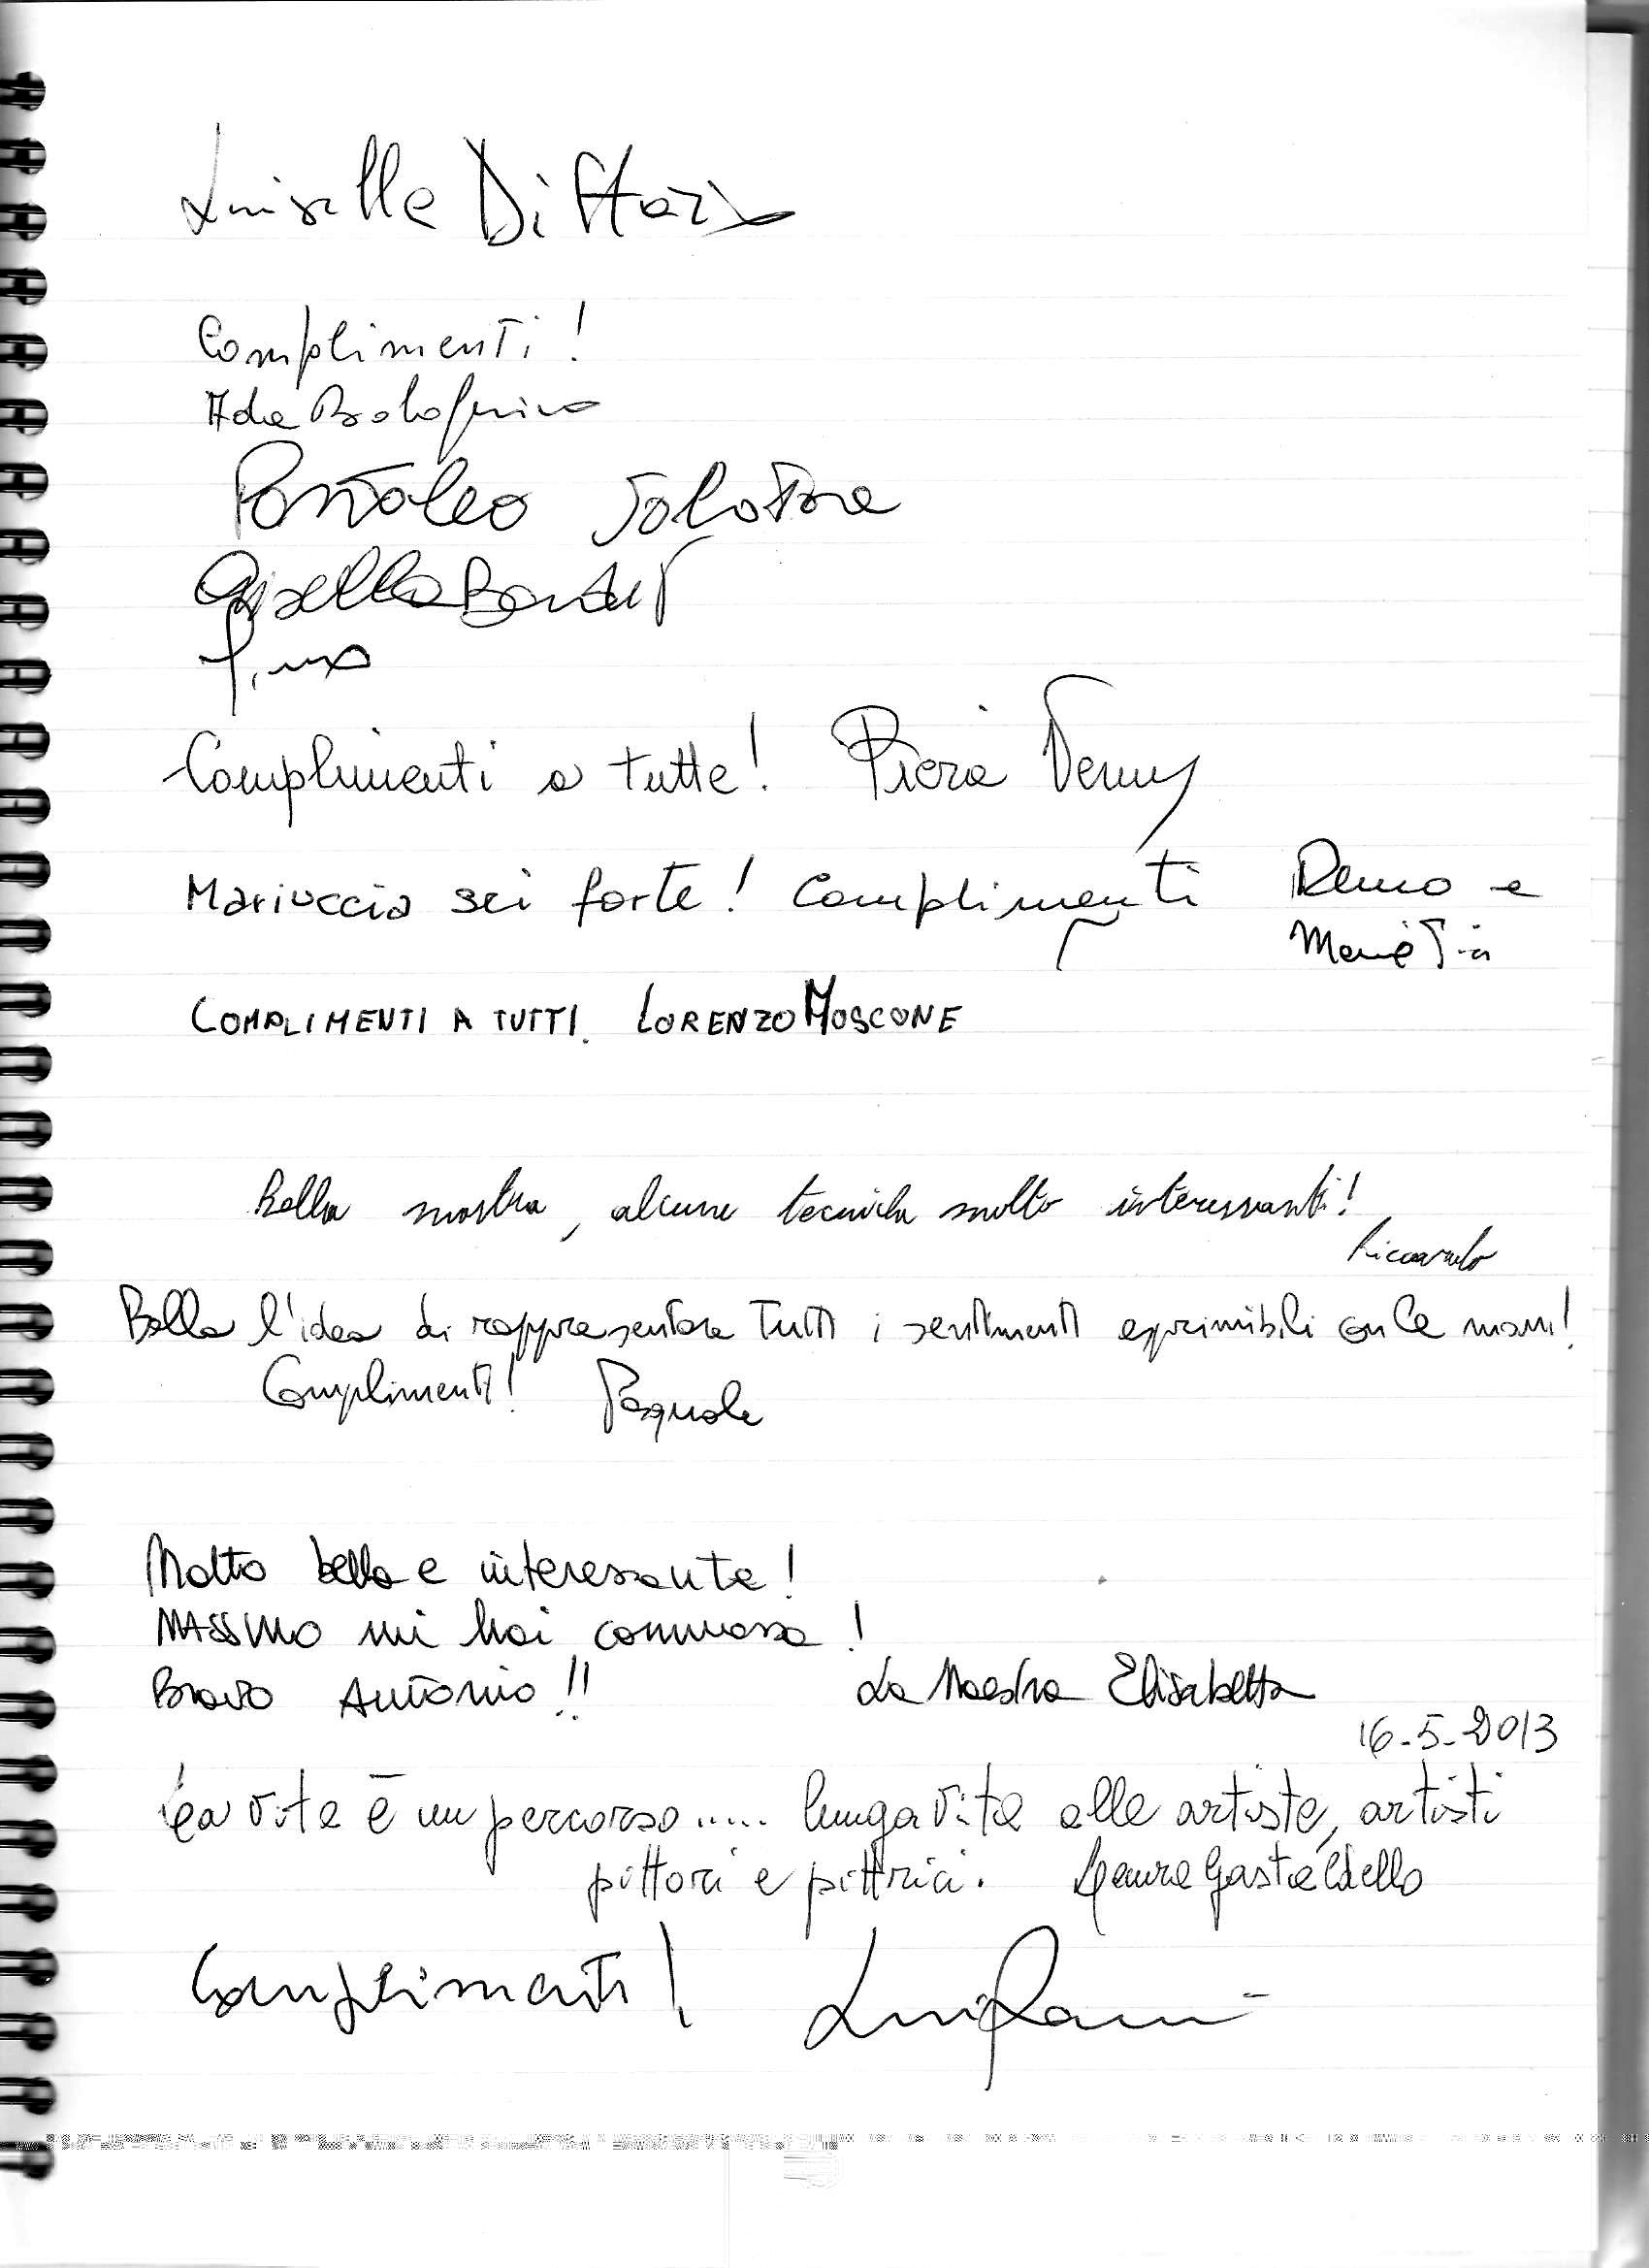 Luisella Di
Complimenti!
Ada Bolognino
Pontoleo Salvatore
Gisella
Complimenti a tutte! Piera
Mariuccia sei forte! Complimenti Remo e
COMPLIMENTI A TUTTI. LORENZO MOSCONE
Bella mostra, alcune tecniche molto interessanti!
Riccardo
Bella l'idea di rappresentare tutti i sentimenti esprimibili con le mani!
Complimenti! Pasquale
Molto bella e interessante!
MASSIMO mi hai commossa!
Bravo Antonio!! La Maestra Elisabetta
16-5-2013
La vita è un percorso..... lunga vita alle artiste, artisti
pittori e pittrici. Laura Gastaldello
Complimenti!